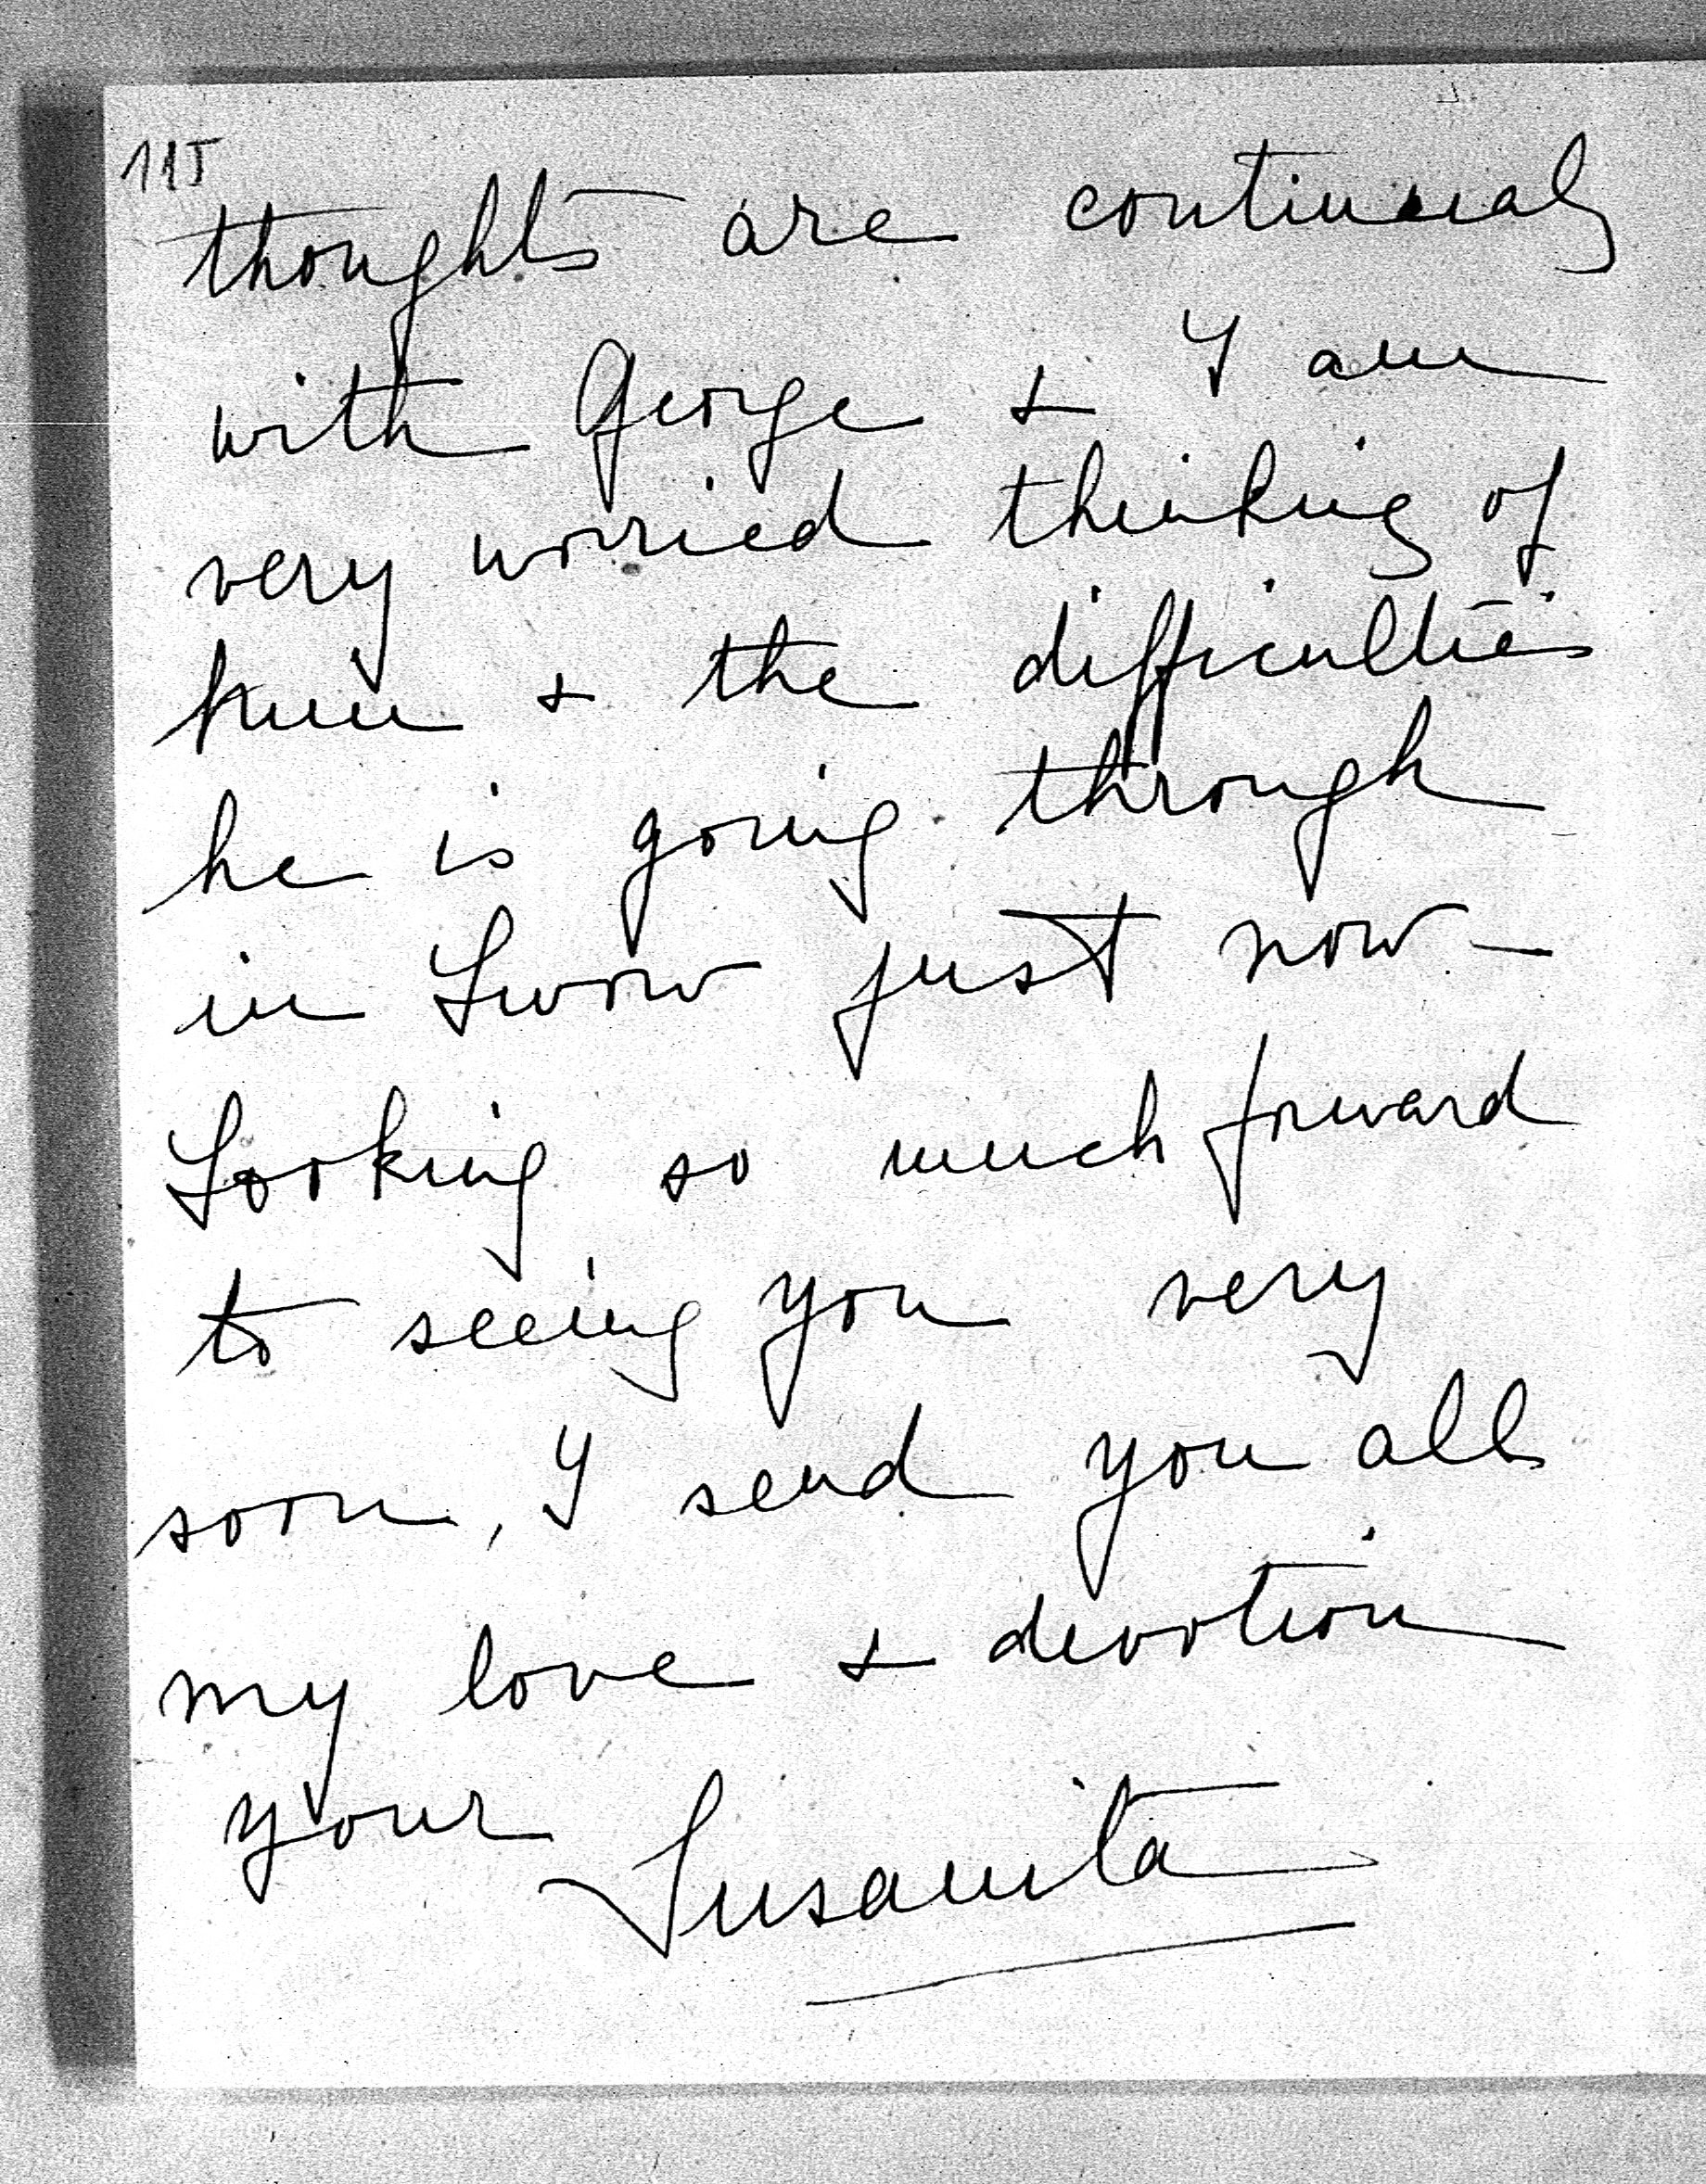 115
thoughts are continualy
with George & I am
very worried thinking of
him & the difficulties
he is going through
in Lwow just now –
Looking so much forward
to seeing you very
soon, I send you all
my love & devotion
your Susanita